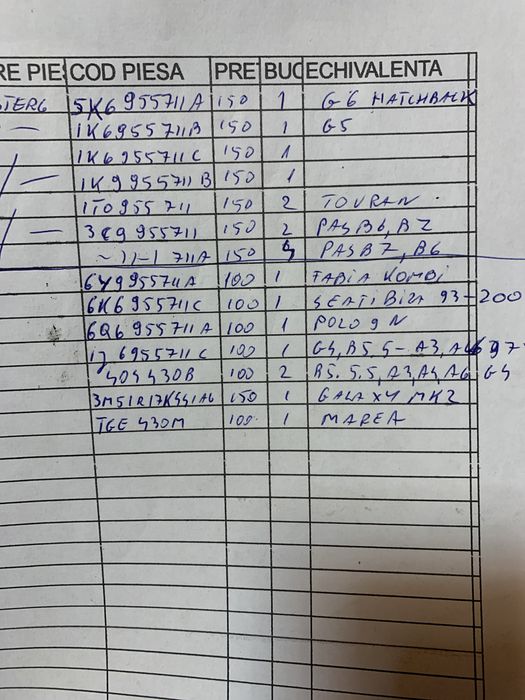 RE PIE COD PIESA PRE BUC ECHIVALENTA
STERG 5K6 955711A 150 1 G6 HATCHBACK
— 1K6955711B 150 1 G5
1K6955711C 150 1
— 1K9955711B 150 1
1T0955711 150 2 TOURAN
— 3C9955711 150 2 PASB6, B7
~ 11-1 711A 150 PASB7, B6
6Y9955711A 100 1 FABIA KOMBI
6K6955711C 100 1 SEATIBIZA 93-200
6Q6955711A 100 1 POLO 9N
1J6955711C 100 1 G4, B5.5-A3,
404430B 100 2 B5.5.5, A3, A4, A6 G4
3M51R17K441A6 150 1 GALAXY MK2
TGE 430M 100 1 MAREA